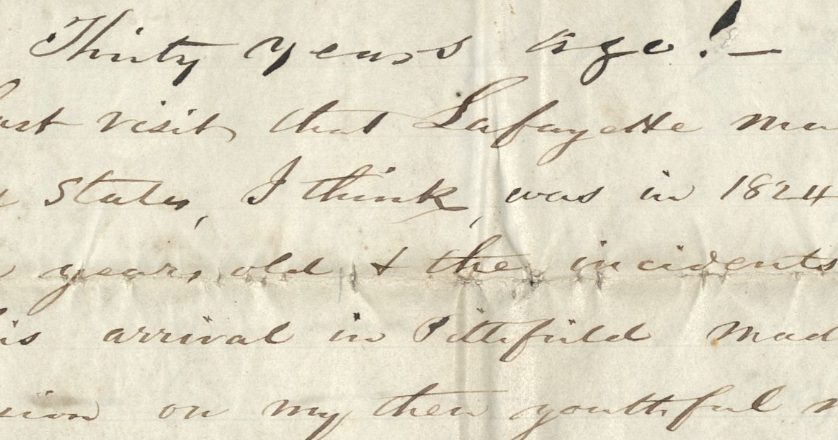 Thirty years ago! —
last visit that Lafayette ma
States, I think, was in 1824
years, old & the incidents
his arrival in Pittsfield mad
sion on my then youthful